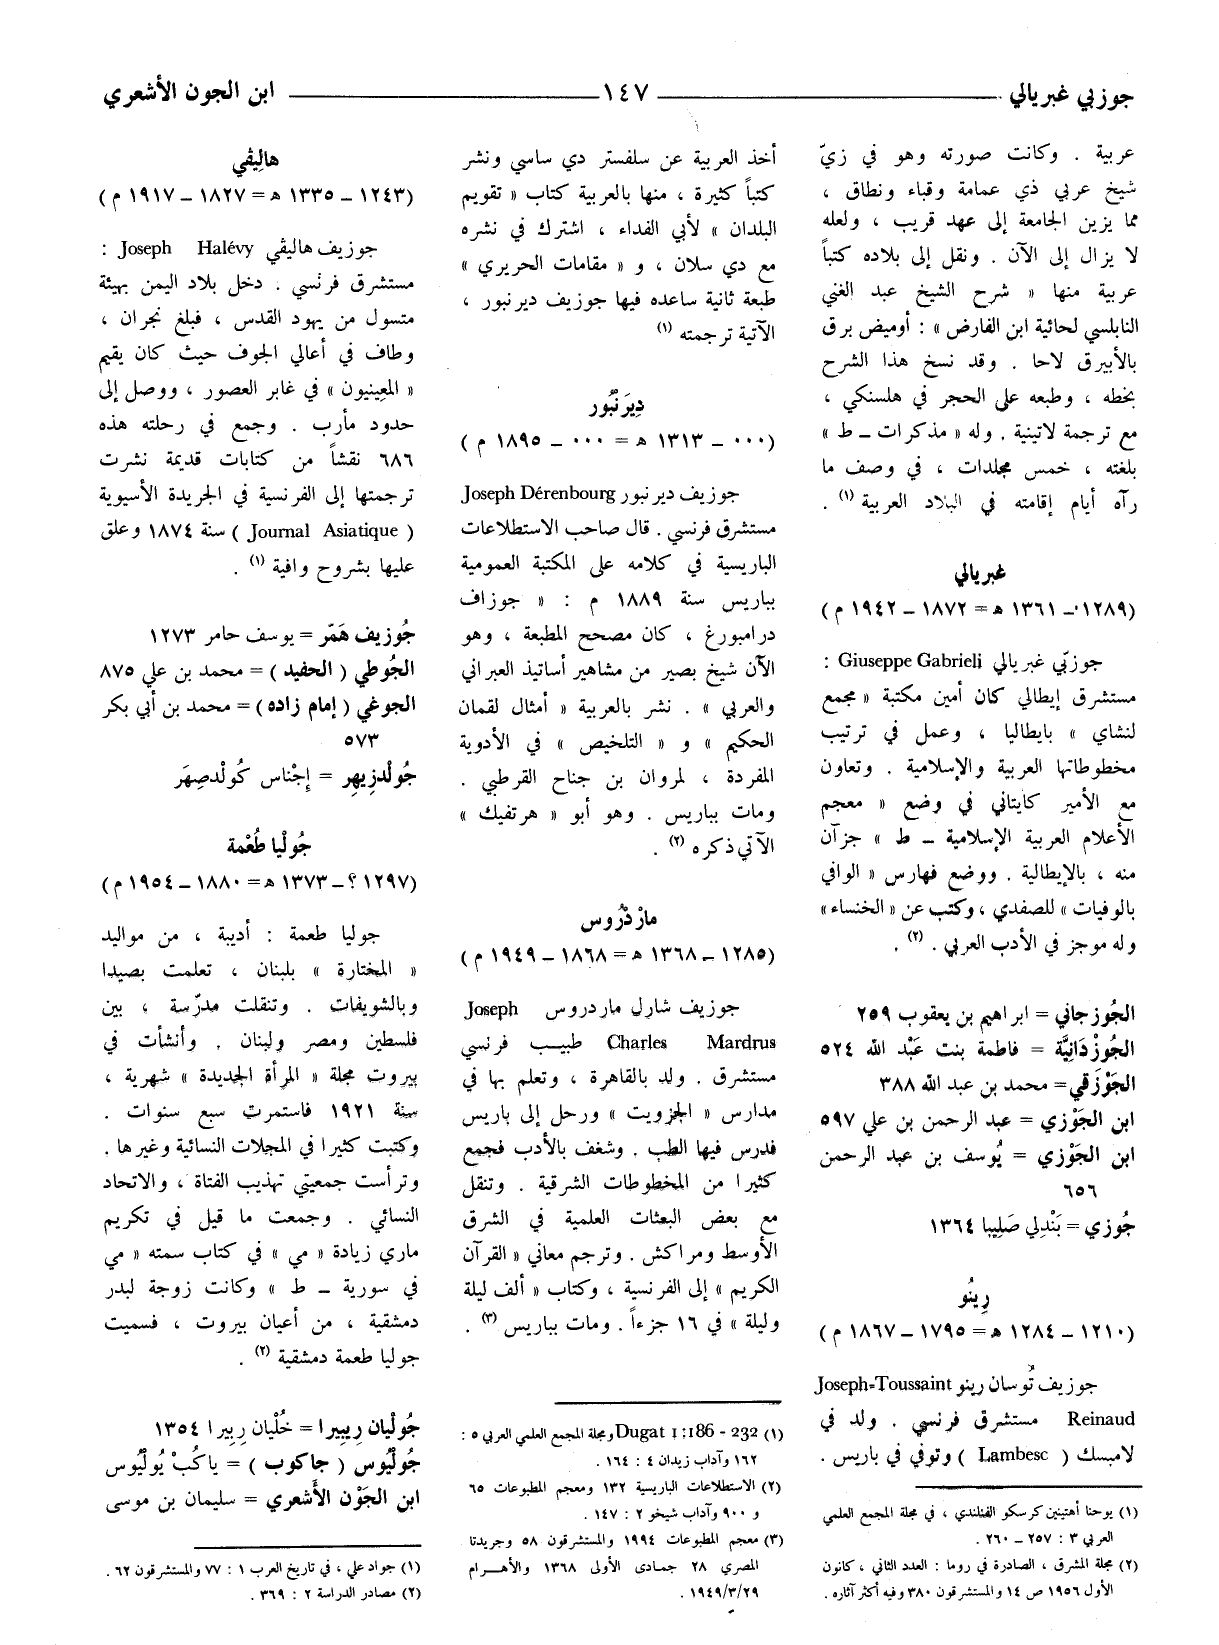 جوزبي غبريالي ١٤٧ ابن الجون الأشعري
عربية . وكانت صورته وهو في زيّ
شيخ عربي ذي عمامة وقباء ونطاق ،
مما يزين الجامعة إلى عهد قريب ، ولعله
لا يزال إلى الآن . ونقل إلى بلاده كتباً
عربية منها « شرح الشيخ عبد الغني
النابلسي لحائية ابن الفارض » : أوميض برق
بالأبيرق لاحا . وقد نسخ هذا الشرح
بخطه ، وطبعه على الحجر في هلسنكي ،
مع ترجمة لاتينية . وله « مذكرات ــ ط »
بلغته ، خمس مجلدات ، في وصف ما
رآه أيام إقامته في البلاد العربية (١) .
غبريالي
(١٢٨٩ ــ ١٣٦١ ه = ١٨٧٢ ــ ١٩٤٢ م)
جوزبّي غبريالي Giuseppe Gabrieli :
مستشرق إيطالي كان أمين مكتبة « مجمع
لنشاي » بايطاليا ، وعمل في ترتيب
مخطوطاتها العربية والإسلامية . وتعاون
مع الأمير كايتاني في وضع « معجم
الأعلام العربية الإسلامية ــ ط » جزآن
منه ، بالإيطالية . ووضع فهارس « الوافي
بالوفيات » للصفدي ، وكتب عن « الخنساء »
وله موجز في الأدب العربي . (٢) .
الجُوزجاني = ابراهيم بن يعقوب ٢٥٩
الجُوزْدَانِيَّة = فاطمة بنت عَبْد الله ٥٢٤
الجَوْزَقي = محمد بن عبد الله ٣٨٨
ابن الجَوْزي = عبد الرحمن بن علي ٥٩٧
ابن الجَوْزي = يُوسف بن عبد الرحمن
٦٥٦
جُوزي = بَنْدلي صَلِيبا ١٣٦٤
رِينُو
(١٢١٠ ــ ١٢٨٤ ه = ١٧٩٥ ــ ١٨٦٧ م)
جوزيف تُوسان رينو Joseph=Toussaint
Reinaud مستشرق فرنسي . ولد في
لامبسك ( Lambesc ) وتوفي في باريس .
(١) يوحنا أهتينين كرسكو الفنلندي ، في مجلة المجمع العلمي
العربي ٣ : ٢٥٧ ــ ٢٦٠ .
(٢) مجلة المشرق ، الصادرة في روما : العدد الثاني ، كانون
الأول ١٩٥٦ ص ١٤ والمستشرقون ٣٨٠ وفيه أكثر آثاره .
أخذ العربية عن سلفستر دي ساسي ونشر
كتباً كثيرة ، منها بالعربية كتاب « تقويم
البلدان » لأبي الفداء ، اشترك في نشره
مع دي سلان ، و « مقامات الحريري »
طبعة ثانية ساعده فيها جوزيف ديرنبور ،
الآتية ترجمته (١)
دِيرَ نْبُور
(٠٠٠ ــ ١٣١٣ ه = ٠٠٠ ــ ١٨٩٥ م)
جوزيف ديرنبور Joseph Dérenbourg
مستشرق فرنسي . قال صاحب الاستطلاعات
الباريسية في كلامه على المكتبة العمومية
بباريس سنة ١٨٨٩ م : « جوزاف
درامبورغ ، كان مصحح المطبعة ، وهو
الآن شيخ بصير من مشاهير أساتيذ العبراني
والعربي » . نشر بالعربية « أمثال لقمان
الحكيم » و « التلخيص » في الأدوية
المفردة ، لمروان بن جناح القرطبي .
ومات بباريس . وهو أبو « هرتفيك »
الآتي ذكره (٢) .
مارْدْرُوس
(١٢٨٥ ــ ١٣٦٨ ه = ١٨٦٨ ــ ١٩٤٩ م)
جوزيف شارل ماردروس Joseph
Charles Mardrus طبيب فرنسي
مستشرق . ولد بالقاهرة ، وتعلم بها في
مدارس « الجزويت » ورحل إلى باريس
فدرس فيها الطب . وشغف بالأدب فجمع
كثيرا من المخطوطات الشرقية . وتنقل
مع بعض البعثات العلمية في الشرق
الأوسط ومراكش . وترجم معاني « القرآن
الكريم » إلى الفرنسية ، وكتاب « ألف ليلة
وليلة » في ١٦ جزءاً . ومات بباريس (٣) .
(١) Dugat I :186 - 232 ومجلة المجمع العلمي العربي ٥ :
١٦٢ وآداب زيدان ٤ : ١٦٤ .
(٢) الاستطلاعات الباريسية ١٣٢ ومعجم المطبوعات ٦٥
و ٩٠٠ وآداب شيخو ٢ : ١٤٧ .
(٣) معجم المطبوعات ١٩٩٤ والمستشرقون ٥٨ وجريدتا
المصري ٢٨ جمادى الأولى ١٣٦٨ والأهرام
١٩٤٩/٣/٢٩ .
هالِيڤي
(١٢٤٣ ــ ١٣٣٥ ه = ١٨٢٧ ــ ١٩١٧ م)
جوزيف هاليڤي Joseph Halévy :
مستشرق فرنسي . دخل بلاد اليمن بهيئة
متسول من يهود القدس ، فبلغ نجران ،
وطاف في أعالي الجوف حيث كان يقيم
« المعِينيون » في غابر العصور ، ووصل إلى
حدود مأرب . وجمع في رحلته هذه
٦٨٦ نقشاً من كتابات قديمة نشرت
ترجمتها إلى الفرنسية في الجريدة الأسيوية
( Journal Asiatique ) سنة ١٨٧٤ وعلق
عليها بشروح وافية (١) .
جُوزيف هَمّر = يوسف حامر ١٢٧٣
الجُوطي ( الحفيد ) = محمد بن علي ٨٧٥
الجوغي ( إمام زاده ) = محمد بن أبي بكر
٥٧٣
جُولْدزِيهِر = إجْناس كُولْدصِهَر
جُولْيا طُعْمة
(١٢٩٧ ؟ ــ ١٣٧٣ ه = ١٨٨٠ ــ ١٩٥٤ م)
جوليا طعمة : أديبة ، من مواليد
« المختارة » بلبنان ، تعلمت بصيدا
وبالشويفات . وتنقلت مدرّسة ، بين
فلسطين ومصر ولبنان . وأنشأت في
بيروت مجلة « المرأة الجديدة » شهرية ،
سنة ١٩٢١ فاستمرت سبع سنوات .
وكتبت كثيرا في المجلات النسائية وغيرها .
وترأست جمعيتي تهذيب الفتاة ، والاتحاد
النسائي . وجمعت ما قيل في تكريم
ماري زيادة « مي » في كتاب سمته « مي
في سورية ــ ط » وكانت زوجة لبدر
دمشقية ، من أعيان بيروت ، فسميت
جوليا طعمة دمشقية (٢) .
جُولْيان رِيبِيرا = خُلْيان رِبِيرا ١٣٥٤
جُولْيُوس ( جاكوب ) = ياكُبْ يُولْيُوس
ابن الجَوْن الأَشعري = سليمان بن موسى
(١) جواد علي ، في تاريخ العرب ١ : ٧٧ والمستشرقون ٦٢ .
(٢) مصادر الدراسة ٢ : ٣٦٩ .